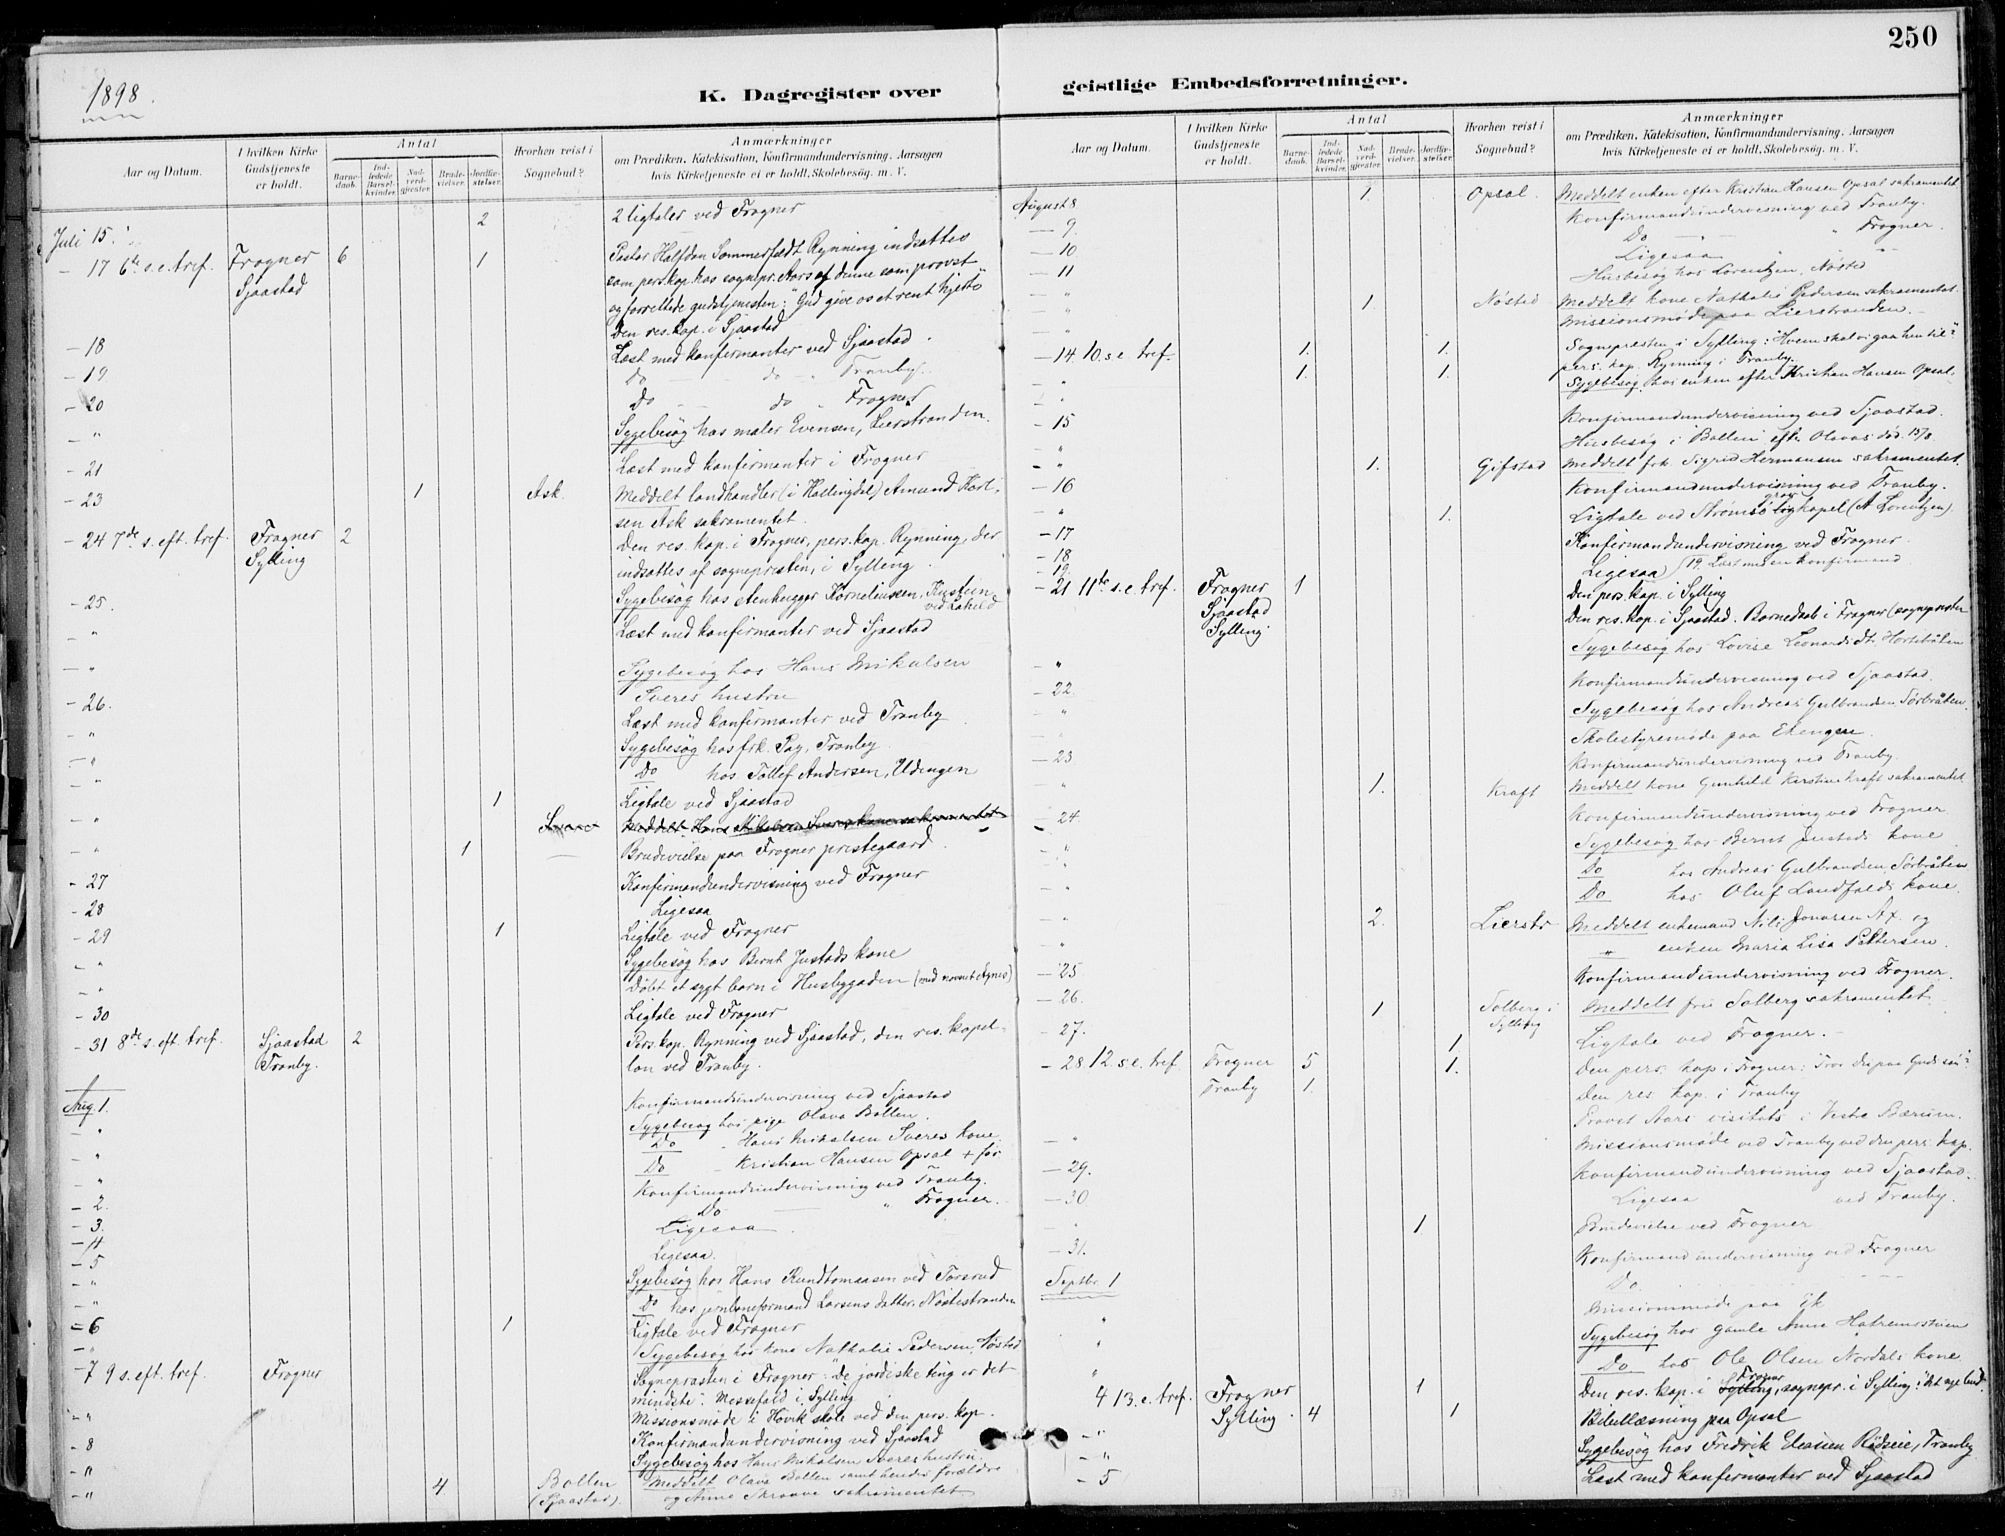 250
1898.
K. Dagregister over geistlige Embedsforretninger.
Aar og Datum. I hvilken Kirke Gudstjeneste er holdt. Antal Barnedaab. Indledede Barselkvinder. Nadverdgjester. Brudevielser. Jordfæstelser. Hvorhen reist i Sognebud? Anmærkninger om Prædiken, Katekisation, Konfirmandundervisning, Aarsagen hvis Kirketjeneste ei er holdt, Skolebesøg, m. V.
Juli 15. 2 2 ligtaler ved Frogner
- 17 6te s.e. tref. Frogner 6 1 Pastor Halfdan Sommerfeldt Rynning indsattes
Sjaastad som pers. kap. hos sognepr. Aars af denne som provst
og forrettede gudstjenesten: "Gud give os et rent hjerte"
Den res. kap. i Sjaastad
- 18 Læst med konfirmanter ved Sjaastad.
- 19 Do - do " Tranby.
- 20 Do do " Frogner
- " Sygebesøg hos maler Evensen, Lierstranden.
- 21 Læst med konfirmanter i Frogner
- 23 1 Ask. Meddelt landhandler (i Hallingdal) Amund Karl-
sen Ask sakramentet.
- 24 7de s. eft. tref. Frogner 2 Den res. kap. i Frogner, pers. kap. Rynning, der
Sylling indsattes af sognepresten, i Sylling.
- 25. Sygebesøg hos stenhugger Korneliussen,
- " Læst med konfirmanter ved Sjaastad
- " Sygebesøg hos Hans Mikalsen
Sveres hustru
- 26. Læst med konfirmanter ved Tranby
- " Sygebesøg hos frk. Pay, Tranby.
- " Do hos Tollef Andersen, Udengen
- " 1 Ligtale ved Sjaastad
- " Meddelt Hans Mikalsen Sveres kone sakramentet
- " 1 Brudevielse paa Frogner prestegaard.
- 27 Konfirmandundervisning ved Frogner
- 28 Ligesaa
- 29 1 Ligtale ved Frogner
- " Sygebesøg hos Bernt Justads kone
- " Døbt et sygt barn i Husbygaden (med navnet Agnes)
- 30 Ligtale ved Frogner
- 31 8de s. eft. tref. Sjaastad 2 Pers. kap. Rynning ved Sjaastad, den res. kapel-
Tranby. lan ved Tranby.
Aug. 1. Konfirmandundervisning ved Sjaastad
- " Sygebesøg hos pige Olava Bollen.
- " Do " Hans Mikalsen Sveres kone
- " Do " Kristian Hansen Opsal + før
- 2. Konfirmandundervisning ved Tranby.
- 3. Do " Frogner.
- 4 Ligesaa
- 5 Ligesaa.
- " Sygebesøg hos Hans ved Torsrud
- " Do hos jernbaneformand Larsens datter, Nøstestranden
- 6 1 Ligtale ved Frogner
- " Sygebesøg hos kone Nathalie Pedersen, Nøsted
- 7 9 s. eft. tref. Frogner Sognepresten i Frogner: "De jordiske ting er det
mindste". Messefald i Sylling
- " Missionsmøde i Hovik skole ved den pers. kap.
- 8 Konfirmandundervisning ved Sjaastad
- " Sygebesøg hos Hans Mikalsen Sveres hustru.
- " 4 Bollen (Sjaastad). Meddelt Olava Bollen samt hendes forældre
og Anne Skraave sakramentet
Aar og Datum. I hvilken Kirke Gudstjeneste er holdt. Antal Barnedaab. Indledede Barselkvinder. Nadverdgjester. Brudevielser. Jordfæstelser. Hvorhen reist i Sognebud? Anmærkninger om Prædiken, Katekisation, Konfirmandundervisning, Aarsagen hvis Kirketjeneste ei er holdt, Skolebesøg, m. V.
August 8 1. Opsal. Meddelt enken efter Kristian Hansen Opsal sakramentet
- 9. Konfirmandundervisning ved Tranby.
- 10 Do - " Frogner.
- 11 Ligesaa "
- " Husbesøg hos Lorentzen, Nøsted
- " 1 Nøsted Meddelt kone Nathalie Pedersen sakramentet.
- " Missionsmøde paa Lierstranden.
- 14. 10. s.e. tref. 1. 1. Sognepresten i Sylling: Hvem skal vi gaa hen til?
- " 1. 1. pers. kap. Rynning i Tranby.
- " Sygebesøg hos enken efter Kristian Hansen Opsal.
- 15 Konfirmandundervisning ved Sjaastad.
- " Husbesøg i Bollen efter Olavas død 13/8.
- " 1. Gifstad Meddelt frk. Sigrid Hermansen sakramentet.
- 16 Konfirmandundervisning ved Tranby.
- " 1. Ligtale ved Strømsø gravkapel (A Lorentzen).
- 17 Konfirmandundervisning ved Frogner.
- 18 Ligesaa / 19. Læst med en konfirmand
- 19.
- 21 11te s.e. tref. Frogner 1 Den pers. kap. i Sylling
Sjaastad Den res. kap. i Sjaastad. Barnedaab i Frogner (sognepresten
Sylling
- " Sygebesøg hos Lovise Leonardsdt. Hortebråten
- 22. Konfirmandundervisning ved Sjaastad.
- " Sygebesøg hos Andreas Gulbrandsen Sörbråten.
- " Skolestyremøde paa Ekengen.
- 23 Konfirmandundervisning ved Tranby.
- " 1. Kraft Meddelt kone Gunhild Kirstine Kraft sakramentet.
- 24 Konfirmandundervisning ved Frogner
- " Sygebesøg hos Bernt Justads kone
- " Do hos Andreas Gulbrandsen Sörbråten
- " Do hos Oluf Landfalds kone.
- " 2. Lierstr Meddelt enkemand Nils Jonassen Ax. og
- " " enken Maria Lisa Pettersen.
- 25 Konfirmandundervisning ved Frogner.
- 26. 1 Solberg i Sylling Meddelt fru Solberg sakramentet.
- 27. 1 Ligtale ved Frogner. -
- 28 12 s.e. tref Frogner 5 1. Den pers. kap i Frogner: Tror du paa Guds søn?
Tranby 1. Den res kap. i Tranby
Provst Aars visitats i Vestre Bærum.
- " Missionsmøde ved Tranby ved den pers. kap.
- 29. Konfirmandundervisning ved Sjaastad.
- 30 Ligesaa ved Tranby.
- " 1 Brudevielse ved Frogner
- 31. Konfirmandundervisning ved Frogner
Septbr. 1 Do.
" Missionsmøde paa Ek
" Sygebesøg hos gamle Anne Hatremsstuen
" Do hos Ole Olsen Nordals kone
4 13. e. tref. Frogner 1 Den res. kap. i Sylling Frogner, sognepr. i Sylling:
Sylling. 4 1
- " Bibellæsning paa Opsal
- " Sygebesøg hos Fredrik Eliasen Rødseie, Tranby
- 5 Læst med konfirmanter ved Sjaastad